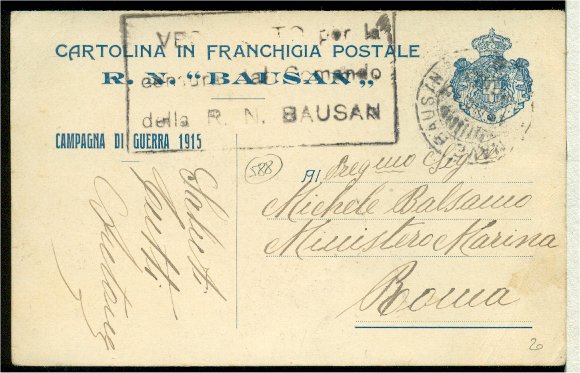 VE TO per la
CARTOLINA IN FRANCHIGIA POSTALE
R. N. "BAUSAN"
censura al Comando
della R. N. BAUSAN
CAMPAGNA DI GUERRA 1915
BAUSAN
588
Al Pregmo Sig
Michele Balsamo
Ministero Marina
Roma
Saluti
tutti
26